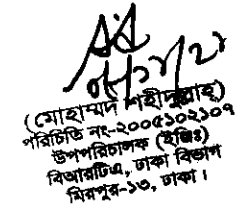 (মোহাম্মদ শহীদুল্লাহ্)
পরিচিতি নং-২০০৫১০২১০৭
উপপরিচালক (ইঞ্জিঃ)
বিআরটিএ, ঢাকা বিভাগ
মিরপুর-১৩, ঢাকা।